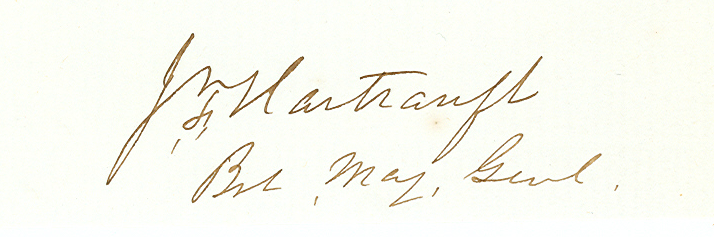 J. F. Hartranft
Bvt. Maj. Genl.